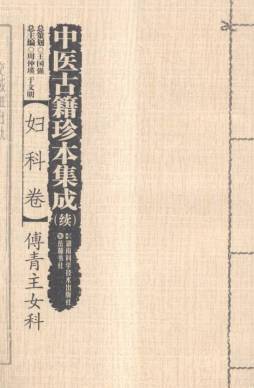 中医古籍珍本集成
(续)
总策划◎王国强
总主编◎周仲瑛 于文明
【妇科卷】
傅青主女科
湖南科学技术出版社
岳麓书社